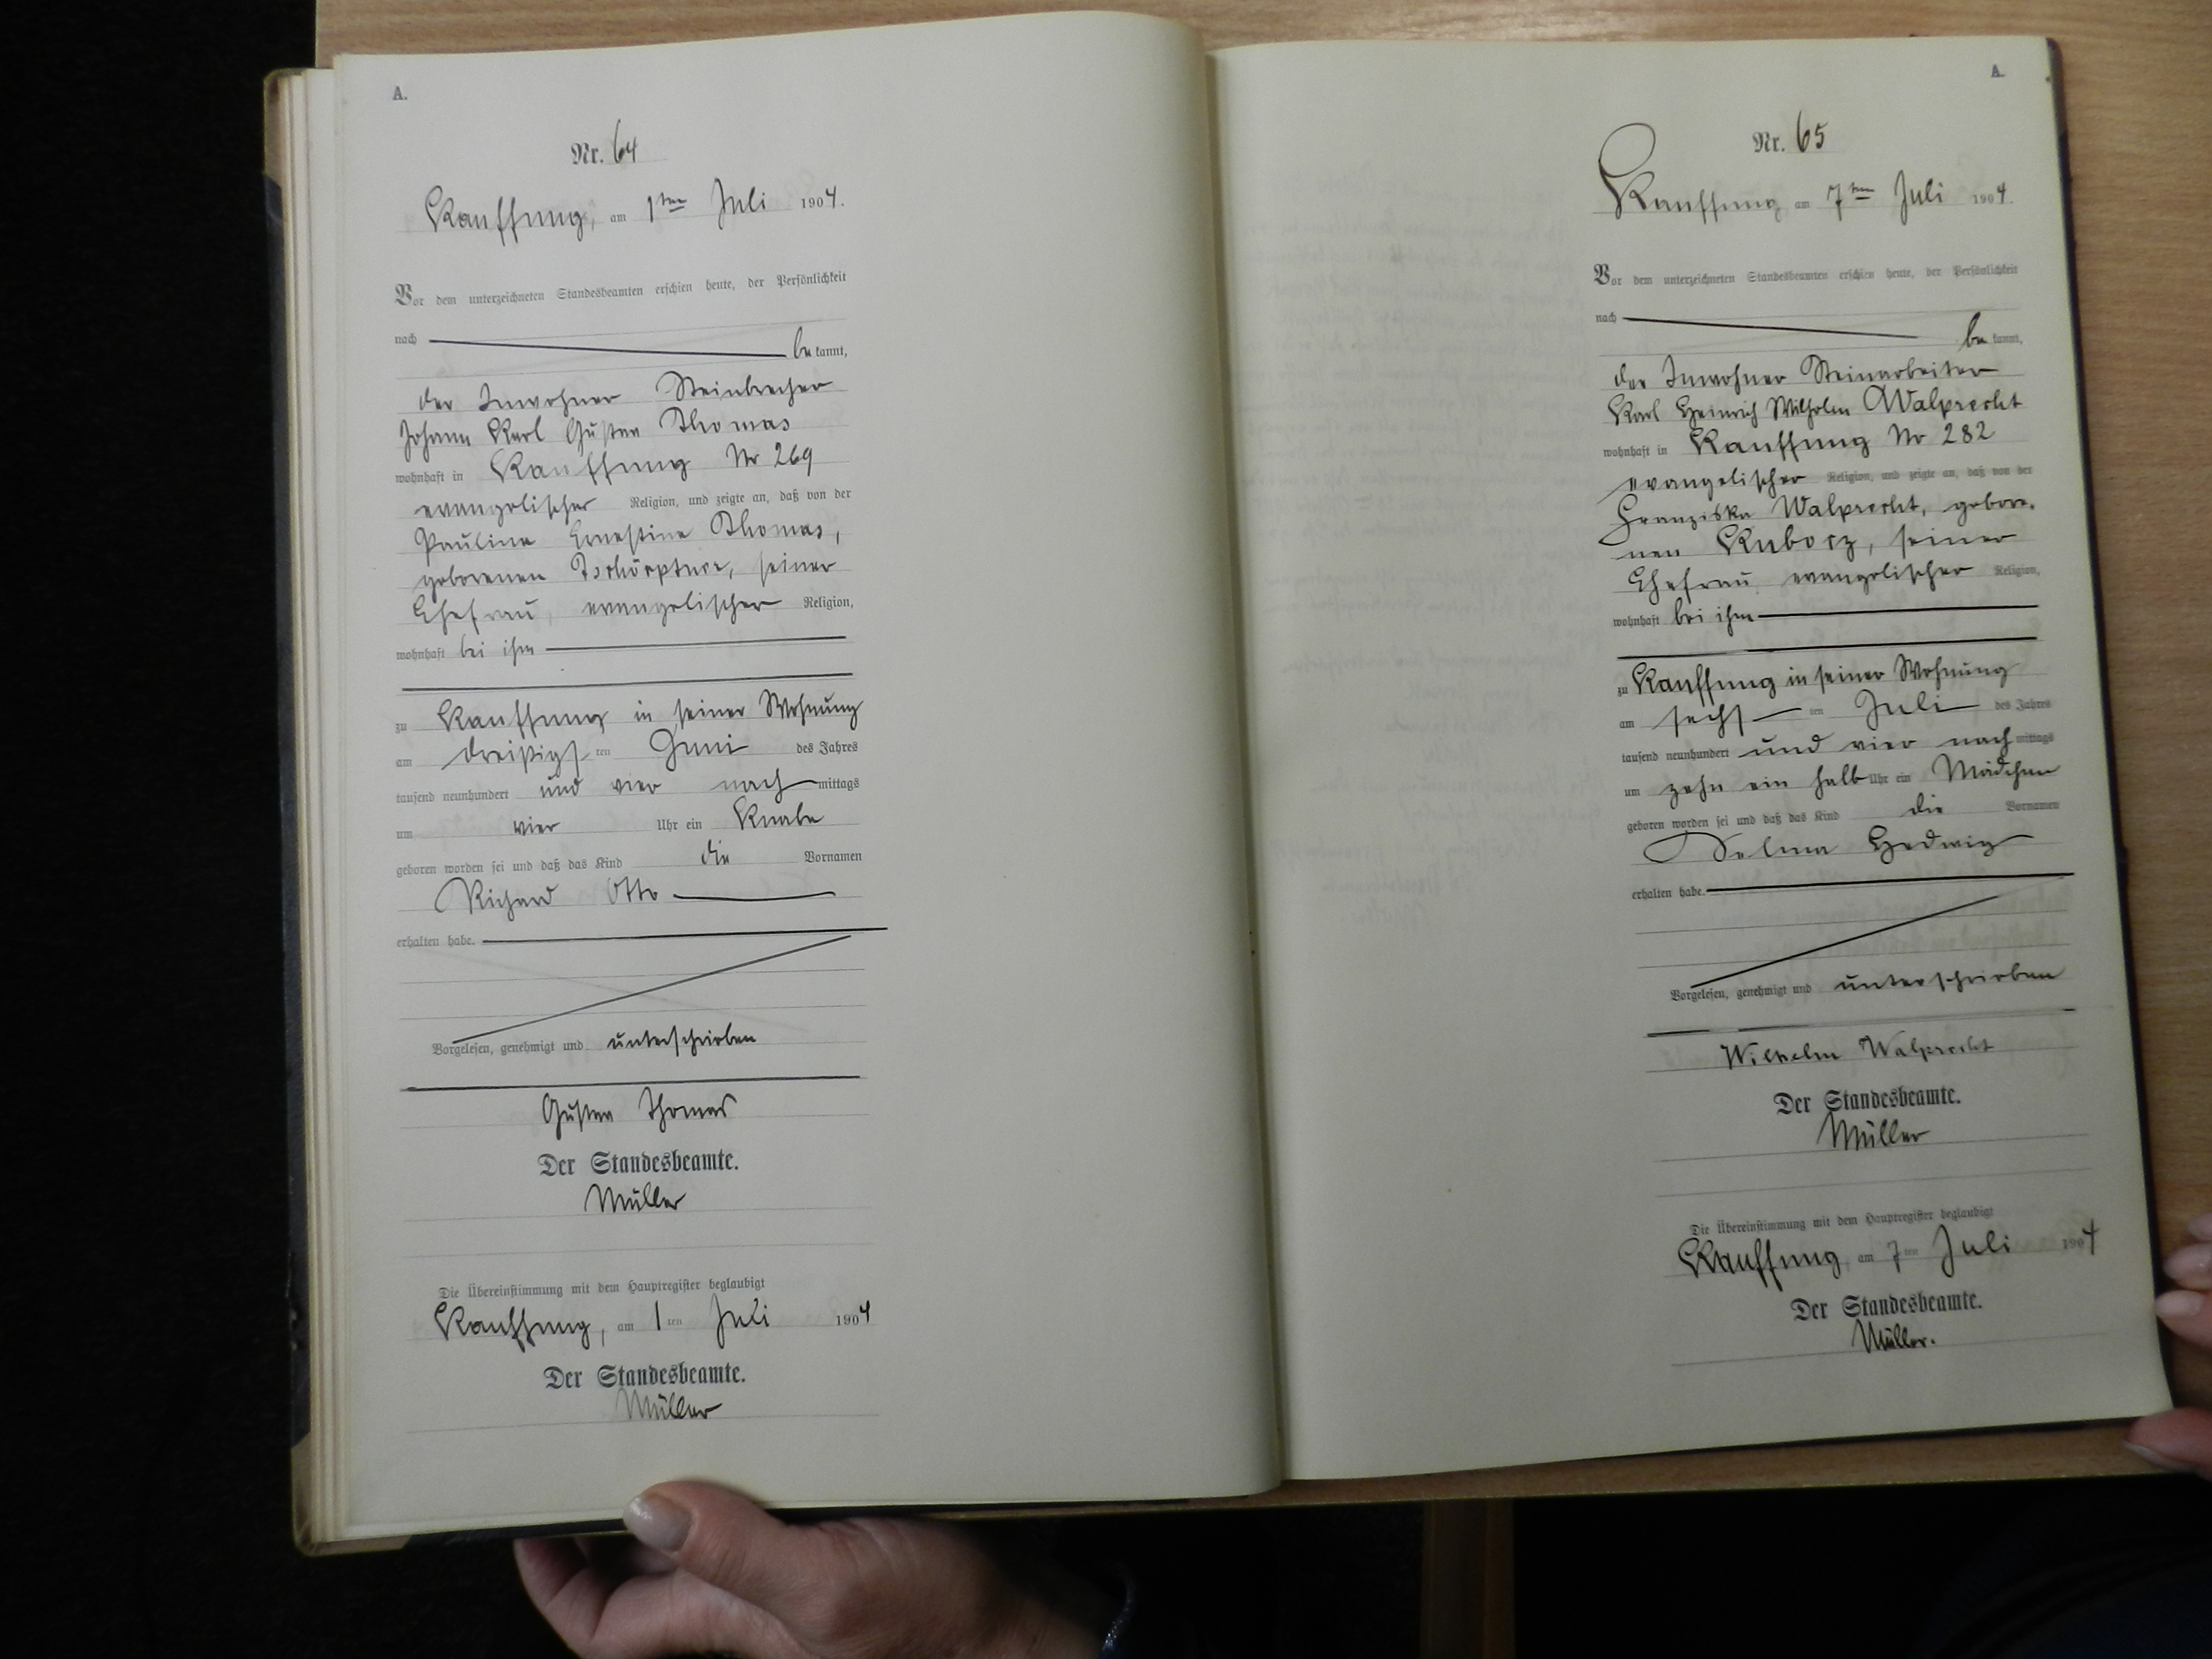 A.
Nr. 64
Kauffung, am 1ten Juli 1904.
Vor dem unterzeichneten Standesbeamten erschien heute, der Persönlichkeit
nach
bekannt,
der Inwohner Steinbrecher
Johann Karl Gustav Thomas
wohnhaft in Kauffung Nr 269
evangelischer Religion, und zeigte an, daß von der
Pauline Ernestine Thomas,
geborenen Tschörptner, seiner
Ehefrau, evangelischer Religion,
wohnhaft bei ihm
zu Kauffung in seiner Wohnung
am dreißigsten Juni des Jahres
tausend neunhundert und vier nachmittags
um vier Uhr ein Knabe
geboren worden sei und daß das Kind die Vornamen
Richard Otto
erhalten habe.
Vorgelesen, genehmigt und unterschrieben
Gustav Thomas
Der Standesbeamte.
Müller
Die Übereinstimmung mit dem Hauptregister beglaubigt
Kauffung, am 1ten Juli 1904
Der Standesbeamte.
Müller
A.
Nr. 65
Kauffung am 7ten Juli 1904.
Vor dem unterzeichneten Standesbeamten erschien heute, der Persönlichkeit
nach
bekannt,
der Inwohner Steinarbeiter
Karl Heinrich Wilhelm Walprecht
wohnhaft in Kauffung Nr 282
evangelischer Religion, und zeigte an, daß von der
Franziska Walprecht, gebore-
nen Kubocz, seiner
Ehefrau, evangelischer Religion,
wohnhaft bei ihm
zu Kauffung in seiner Wohnung
am sechsten Juli des Jahres
tausend neunhundert und vier nachmittags
um zehn ein halb Uhr ein Mädchen
geboren worden sei und daß das Kind die Vornamen
Selma Hedwig
erhalten habe.
Vorgelesen, genehmigt und unterschrieben
Wilhelm Walprecht
Der Standesbeamte.
Müller
Die Übereinstimmung mit dem Hauptregister beglaubigt
Kauffung, am 7ten Juli 1904
Der Standesbeamte.
Müller.